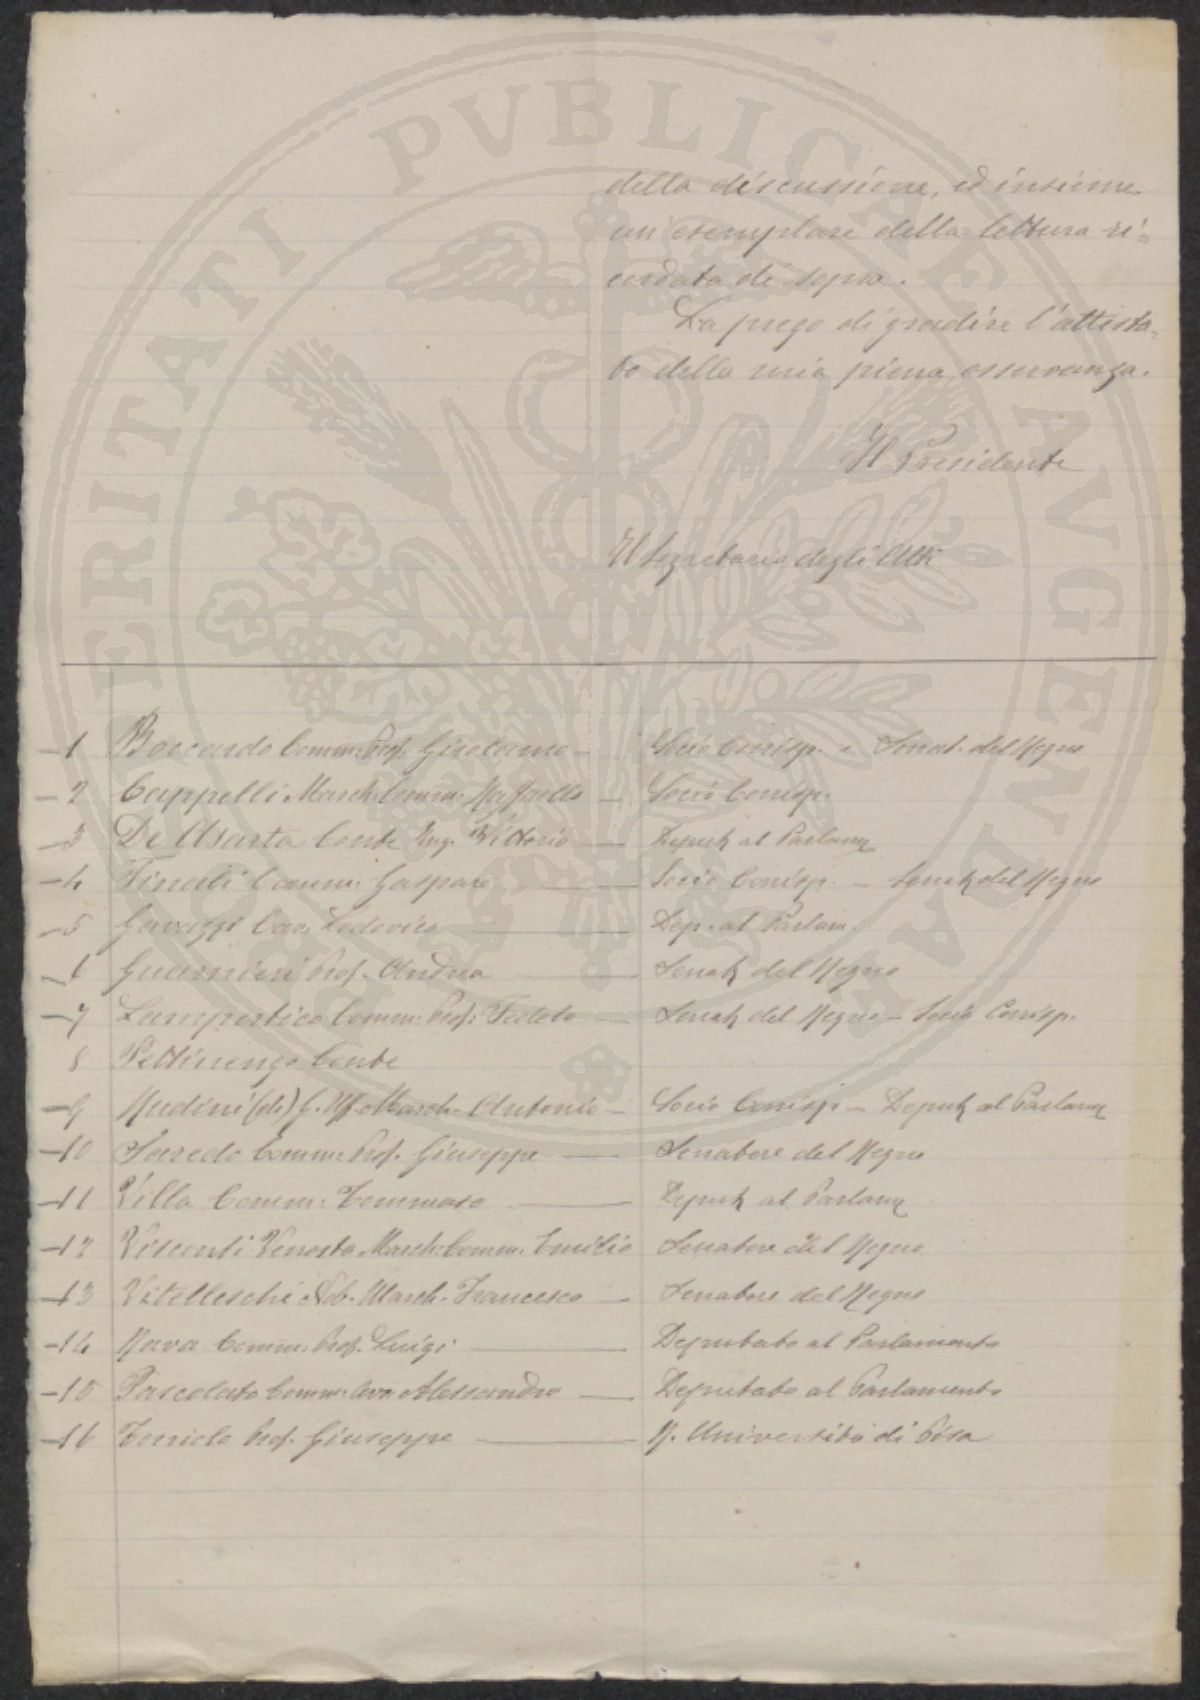 della discussione, ed insieme
un esemplare della lettura ri=
cordata di sopra.
La prego di gradire l'attesta=
to della mia piena osservanza.
Il Presidente
Il Segretario degli Atti
1 Boccardo Comm: Prof. Girolamo — Socio Corrisp. e Senat. del Regno
2 Cappelli March: Comm: Raffaello — Socio Corrisp.
3 De Asarta Conte Ing. Vittorio — Deput. al Parlam
4 Finali Comm: Gaspare — Socio Corrisp. — Senat. del Regno
5 Gavazzi Cav. Lodovico — Dep. al Parlam.
6 Guarnieri Prof. Andrea — Senat. del Regno
7 Lampertico Comm: Prof: Fedele — Senat. del Regno — Socio Corrisp.
8 Pettinengo Conte
9 Rudini (di) March. Antonio — Socio Corrisp — Deput. al Parlam
10 Saredo Comm: Prof. Giuseppe — Senatore del Regno
11 Villa Comm: Tommaso — Deput. al Parlam
12 Visconti Venosta March: Comm. Emilio Senatore del Regno
13 Vitelleschi Nob. March. Francesco — Senatore del Regno
14 Rava Comm: Prof. Luigi — Deputato al Parlamento
15 Pascolato Comm: Avv. Alessandro — Deputato al Parlamento
16 Toniolo Prof. Giuseppe — R. Università di Pisa